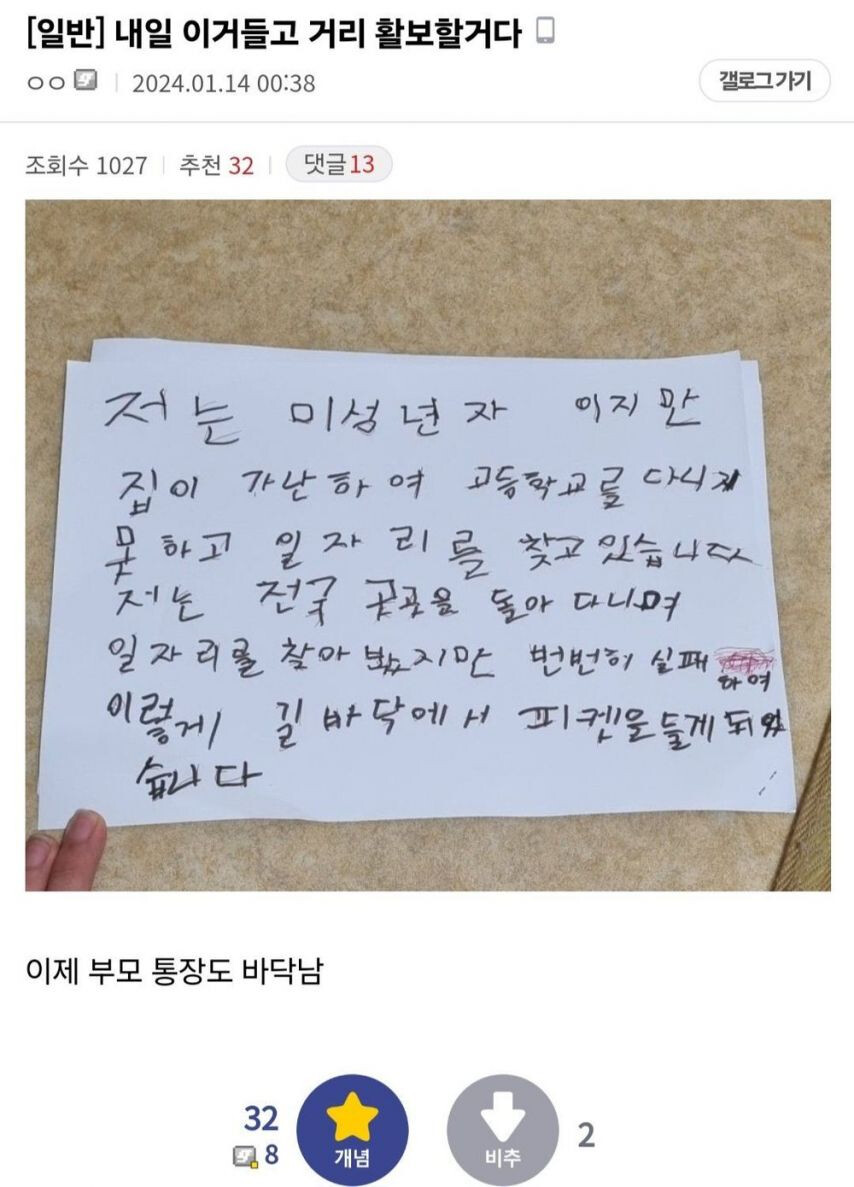 [일반] 내일 이거들고 거리 활보할거다
ㅇㅇ 2024.01.14 00:38
갤로그 가기
조회수 1027 추천 32 댓글 13
저는 미성년자 이지만
집이 가난하여 고등학교를 다니지
못하고 일자리를 찾고 있습니다
저는 전국 곳곳을 돌아 다니며
일자리를 찾아 봤지만 번번히 실패
하여
이렇게 길바닥에서 피켓을 들게 되었
습니다
이제 부모 통장도 바닥남
32
8
개념
비추
2